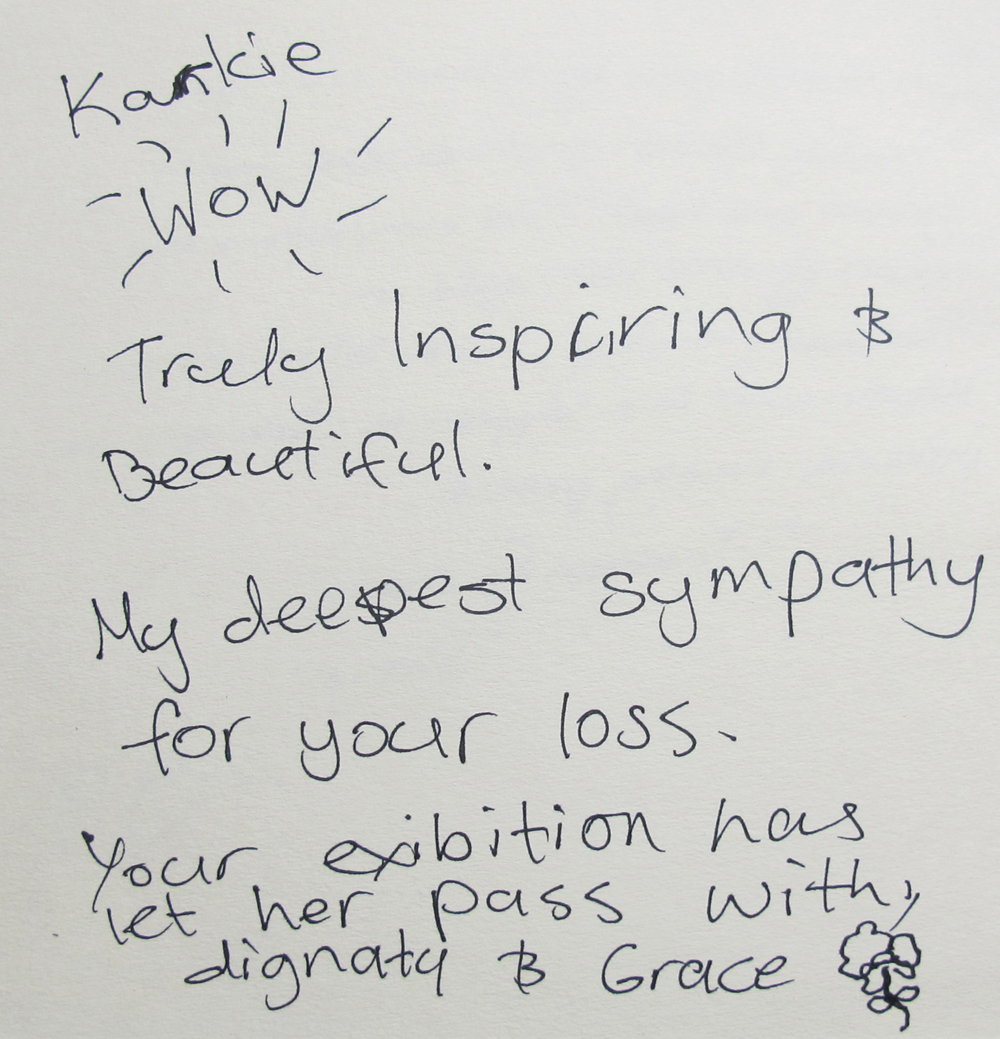 Karkie
WOW
Truely Inspiring &
Beautiful.
My deepest sympathy
for your loss.
Your exibition has
let her pass with,
dignaty & Grace